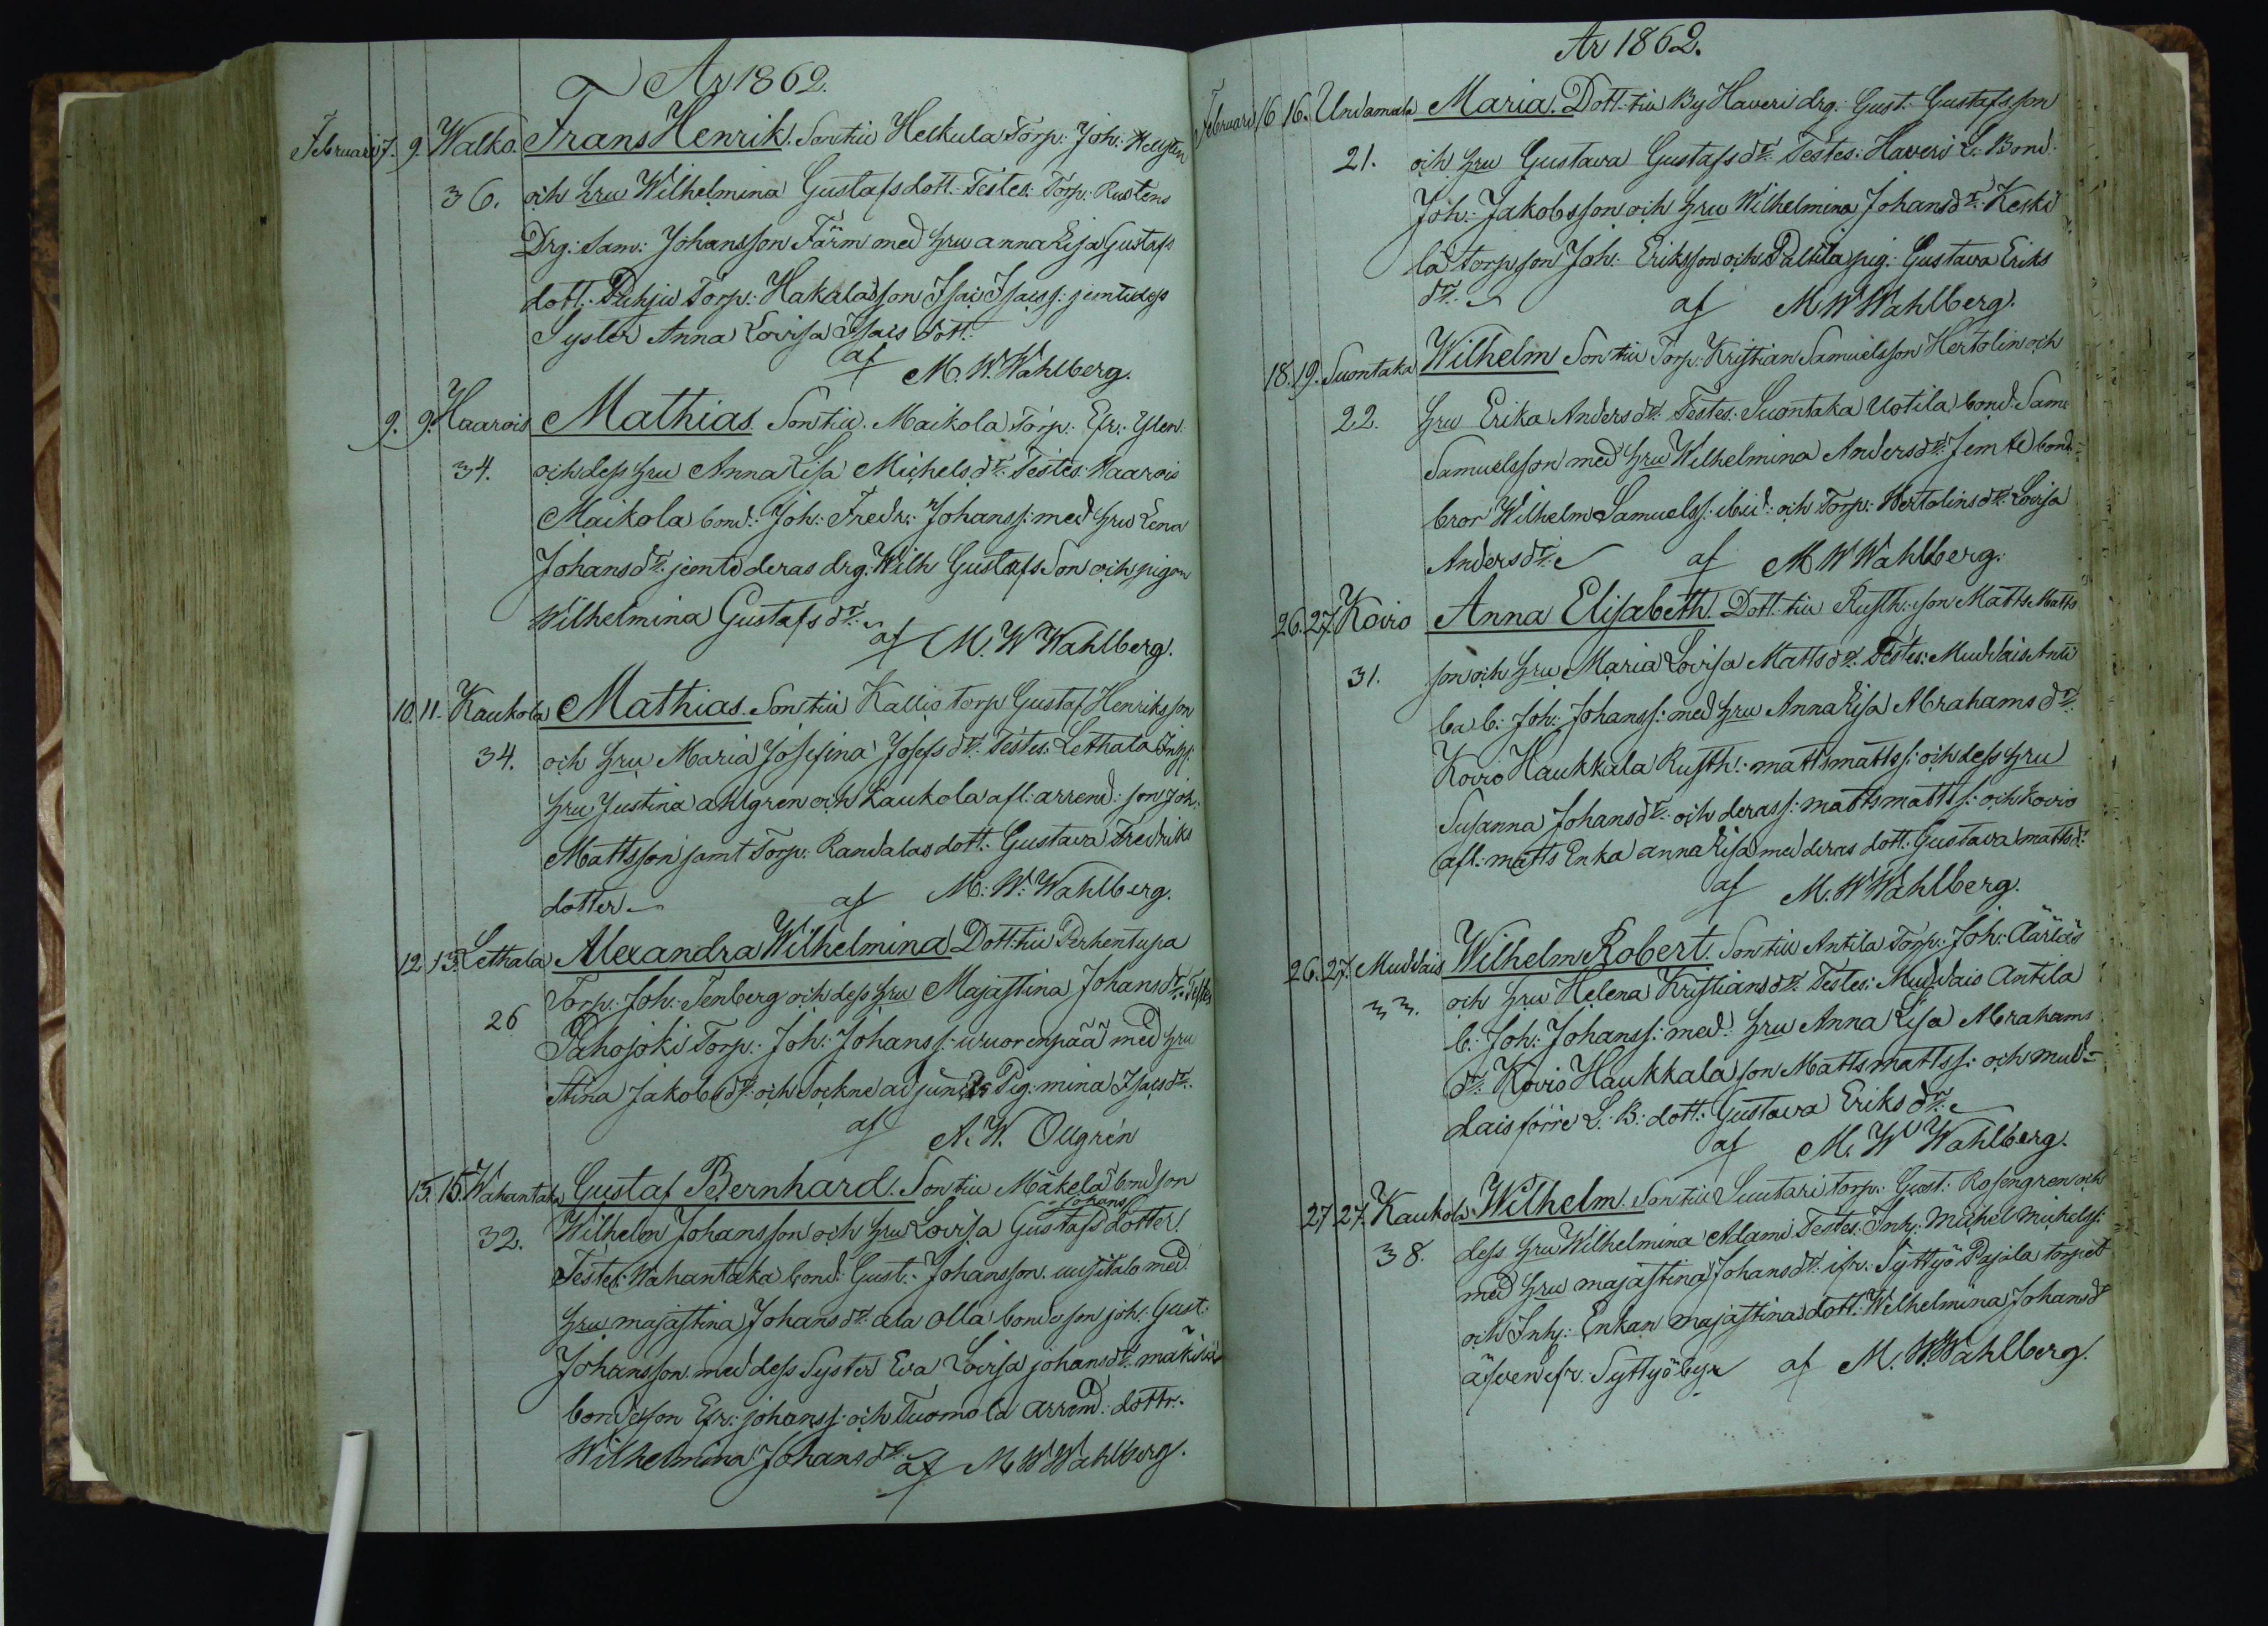 År 1862.
Februari 7. 9. Walko. Frans Henrik. Son till Helkula Torp. Joh: Hellsten
36. och hru Wilhelmina Gustafsdott. Testes: Torp. Rustens
Drg: Sam: Johansson Färm med hru Anna Lisa Gustafs
dott. Puhju Torp: Hakala son Isac Isacss: jemte dess
Syster Anna Lovisa Isacs dott.
af M. W. Wahlberg.
9. 9. Haarois Mathias. Son till Maikola Torp. Efr: Ylen
34. och dess hru Anna Lisa Michelsdr: Testes: Haarois
Maikola bond: Joh: Fredr: Johanss: med hru Lena
Johansdr: jemte deras drg: Wilh Gustafs Son och pigan
Wilhelmina Gustafsdr:
af M. W Wahlberg.
10. 11. Kaukola Mathias. Son till Kallio torp Gustaf Henriksson
34. och hru Maria Josefina Josefsdr: Testes: Lethala Inhys:
hru Justina Ahlgren och Kaukola afl: arrend: son Joh:
Mattsson samt Torp: Randalas dott: Gustava Fredriks
dotter
af M: W: Wahlberg.
12. 13. Lethala Alexandra Wilhelmina Dott: till Perhentupa
Torp: Joh: Tenberg och dess hru Majastina Johansdr: Testes
26 Pahojoki Torp: Joh: Johanss: Wuorenpää med hru
Stina Jakobsdr: och Sockne adjunkts Pig: Mina Isacsdr:
af A. W. Ollgrén
15. 16. Wahantaka Gustaf Bernhard. Son till Mäkelä bondson
Johans
32. Wilhelm Johansson och hru Lovisa Gustafs dotter.
Testes: Wahantaka bond: Gust: Johansson Uusitalo med
hru Majastina Johansdr: Ala Olla bondeson Joh: Gust:
Johansson med dess Syster Eva Lovisa Johansdr: Mäkilä
bondesson Efr: Johanss: och Tuomola arrend: dottr.
Wilhelmina Johansdr: af M W Wahlberg.
År 1862.
Februari 16 16. Undamala Maria. Dott: till By Haveri drg: Gust: Gustafsson
21. och hru Gustava Gustafsdr: Testes: Haveri L: Bond:
Joh: Jakobsson och hru Wilhelmina Johansdr: Keski
la torpson Joh: Eriksson och Paltila pig: Gustava Eriks
dr: af M W Wahlberg.
18. 19. Suontaka Wilhelm Son till Torp: Kristian Samuelsson Hertolin och
22. hru Erika Andersdr: Testes: Suontaka Uotila bond: Sam:
Samuelsson med hru Wilhelmina Andersdr: Jemte bond:
bror Wilhelm Samuelss: ibid: och Torp: Hertolins dr: Lovisa
Andersdr: af M W Wahlberg.
26. 27. Koivo Anna Elisabeth. Dott: till Rusth: son Matts Matts
31. son och hru Maria Lovisa Mattsdr: Testes: Muddais Anti
la b: Joh: Johanss: med hru Anna Lisa Abrahamsdr:
Koivo Haukkala Rusth: Matts Mattss: och dess hru
Susanna Johansdr: och deras s: Matts Mattss: och Koivo
afl: Matts Enka Anna Lisa med deras dott: Gustava Mattsd:
af M. W Wahlberg.
26. 27. Muddais Wilhelm Robert. Son till Antila Torp: Joh: Ääriäs
33. och hru Helena Kristiansdr: Testes: Muddais Antila
b: Joh: Johanss: med hru Anna Lisa Abrahams
dr: Koivo Haukkala son Matts Mattss: och Mud-
dais förre L. B: dott: Gustava Eriksdr:
af M. W Wahlberg.
27 27. Kaukola Wilhelm. Son till Suutari torp: Gust: Rosengren och
38. dess hru Wilhelmina Adami Testes: Inh: Michel Michelss:
med hru Majastina Johansdr: ifr: Syttyö Pajala torpet
och Inh: Enkan Majastinas dott: Wilhelmina Johansdr
äfven ifr. Syttyö by af M. W. Wahlberg.